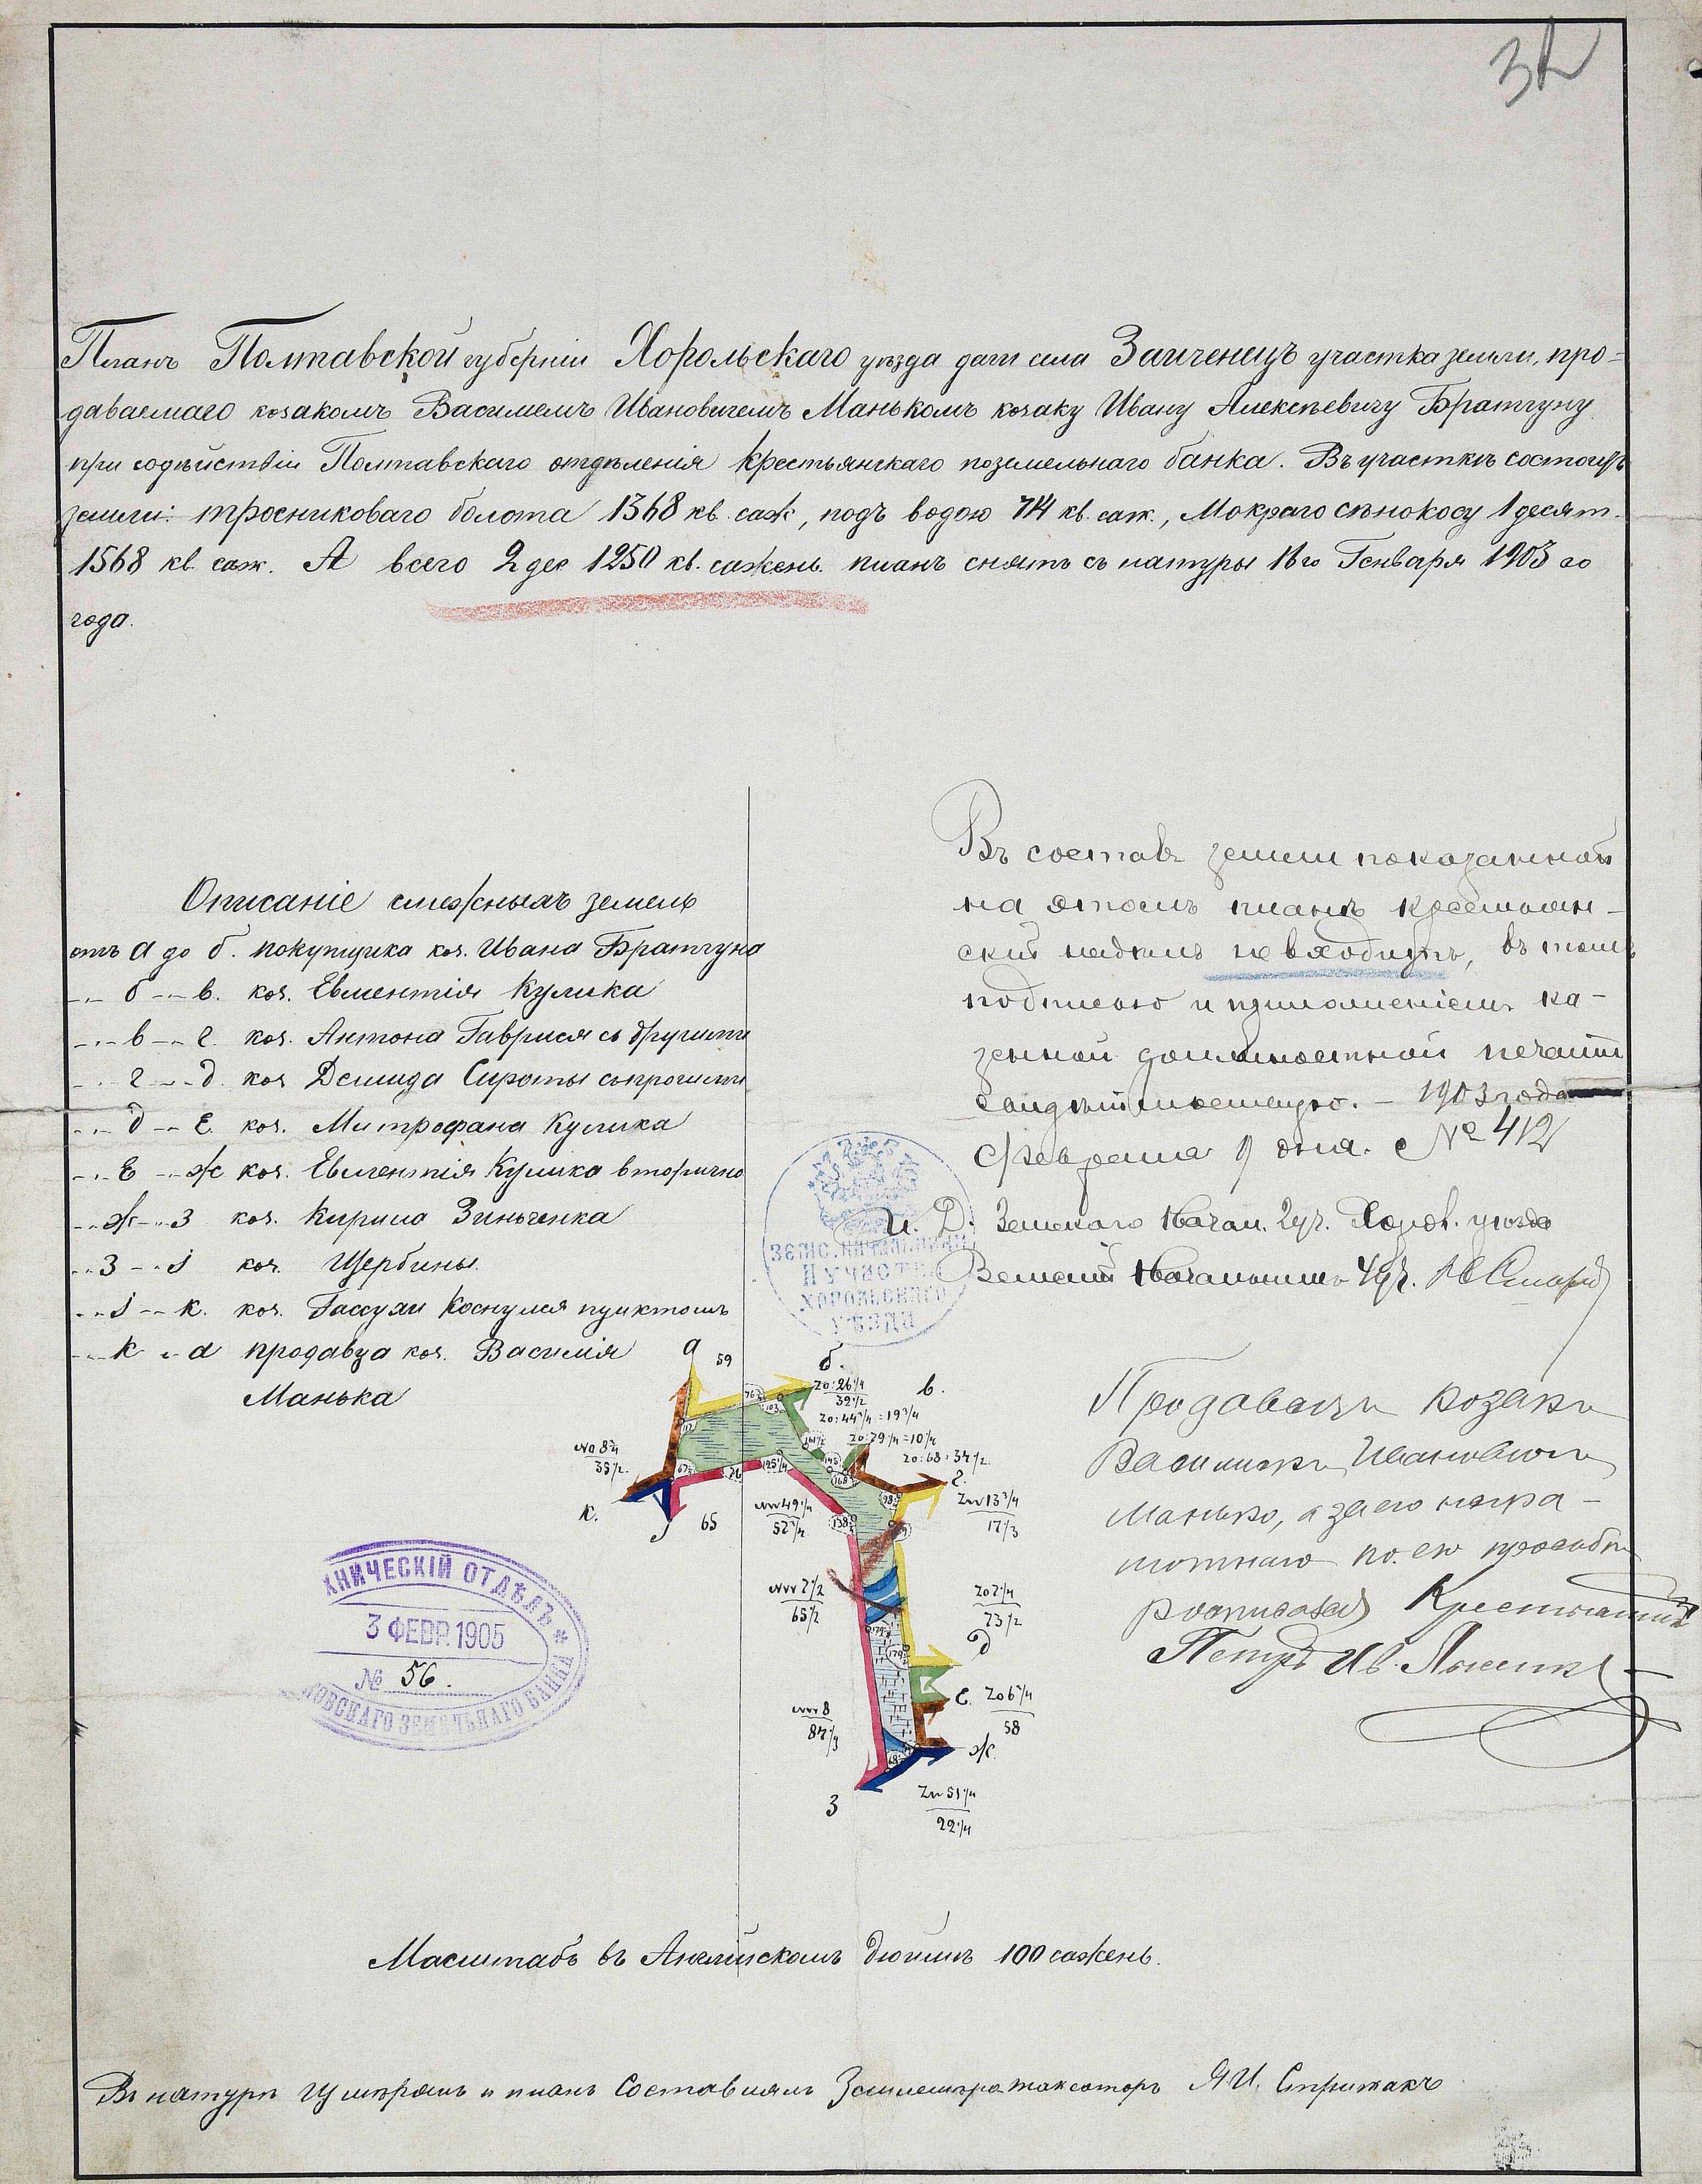 32
Планъ Полтавской губерніи Хорольскаго уѣзда дачи села Заиченецъ участка земли, про-
даваемаго козакомъ Василіемъ Ивановичемъ Манькомъ козаку Ивану Алексѣевичу Братчуну
при содѣйствіи Полтавскаго отдѣленія Крестьянскаго поземельнаго банка. Въ участкѣ состоитъ
земли: тросниковаго болота 1368 кв. саж, подъ водою 714 кв. саж., Мокраго сѣнокосу 1 десят.
1568 кв. саж. А всего 2 дес 1250 кв. сажень. планъ снятъ съ натуры 16го Генваря 1903 го
года.
Описаніе смежныхъ земель
отъ а до б. покупщика коз. Ивана Братчуна
-..- б -..- в. коз. Евлентія Кулика
-..- в -..- г. коз. Антона Гаврися съ другими
-..- г -..- д. коз. Демида Сироты съ прочими
-..- д -..- Е. коз. Митрофана Кулика
-..- Е -..- ж коз. Евлентія Кулика вторично
-..- ж -..- з коз. Кирила Зинченка
-..- з -..- і коз. Щербины.
-..- і -..- к. коз. Гассухи Коснулся пунктомъ
-..- к -..- а продавца коз. Василія
Манька
Въ составъ земли показанной
на этомъ планѣ крестьян-
скій надѣлъ не входитъ, въ томъ
подписью и приложеніемъ ка-
зенной должностной печати
свидѣтельствую. - 1903 года
Февраля 9 дня. № 412
И. Д. Земскаго Начал. 2 уч. Хорол. уѣзда
Земскій Начальникъ 4 уч.
ЗЕМС. НАЧАЛЬНИКЪ
II УЧАСТКА
ХОРОЛЬСКАГО
УѢЗДА
Продавецъ козакъ
Василій Ивановичъ
Манько, а за его негра-
мотнаго по его просьбѣ
росписался Крестьянинъ
Петръ Ив.
а
59
б.
ZO:26 1/4
32 1/2
в.
ZO:44 3/4=19 3/4
ZO:79 1/4=10 1/4
ZO:68:34 1/2
г.
ZW 13 3/4
17 1/3
ZO 2 1/4
73 1/2
д
е.
ZO 6 3/4
58
ж.
ZW 51 1/4
22 1/4
з
NW 8
87 1/3
NW 7 1/2
65 1/2
NW 49 1/4
52 3/4
65
і
к.
NO 8 3/4
35 1/2
ХНИЧЕСКІЙ ОТДѢЛЪ
3 ФЕВР. 1905
№ 56.
ОВСКАГО ЗЕМЕЛЬНАГО БАНКА
Масштабъ въ Англійскомъ дюймѣ 100 сажень.
Въ натурѣ измѣрялъ и планъ Составлялъ Землемѣръ таксаторъ Я.И. Стрижакъ